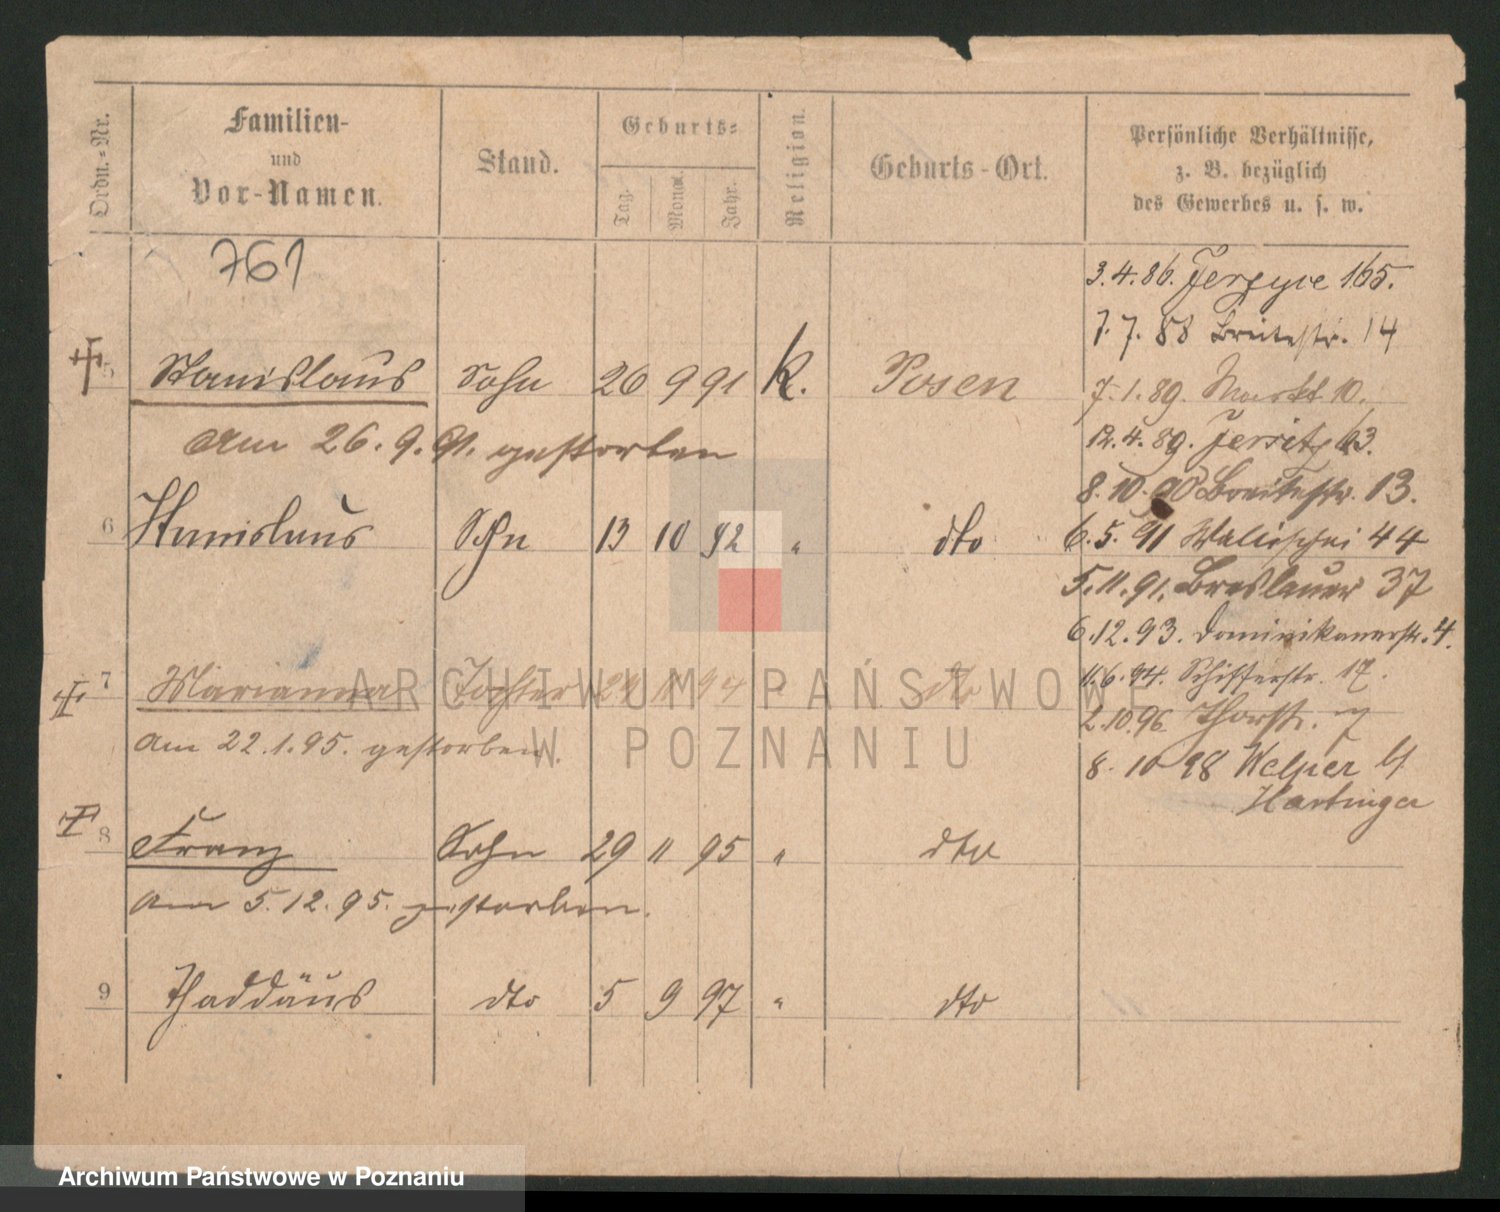 Ordn.-Nr.
Familien-
und
Vor-Namen.
Stand.
Geburts-
Tag.
Monat.
Jahr.
Religion.
Geburts-Ort.
Persönliche Verhältnisse,
z. B. bezüglich
des Gewerbes u. s. w.
761
3.4.86. Jerzyce 165.
7.7.88 Breitestr. 14
5 Stanislaus Sohn 26 9 91 k. Posen
7.1.89. Markt 10.
am 26.9.91. gestorben
12.4.89. Jersitz 63.
8.10.90 Breitestr. 13.
6 Stanislaus Sohn 13 10 92 " dto
6.5.91 Wallischei 44
5.11.91. Breslauer 37
6.12.93. Dominikanerstr. 4.
7 Marianna Tochter 29 11 94 " dto
11.6.94. Schifferstr. 17.
2.10.96 Thorstr.
am 22.1.95. gestorben.
8.10 98
Hartinger
8 Franz Sohn 29 11 95 " dto
am 5.12.95. gestorben.
9 Thaddäus dto 5 9 97 " dto
ARCHIWUM PAŃSTWOWE
W POZNANIU
Archiwum Państwowe w Poznaniu